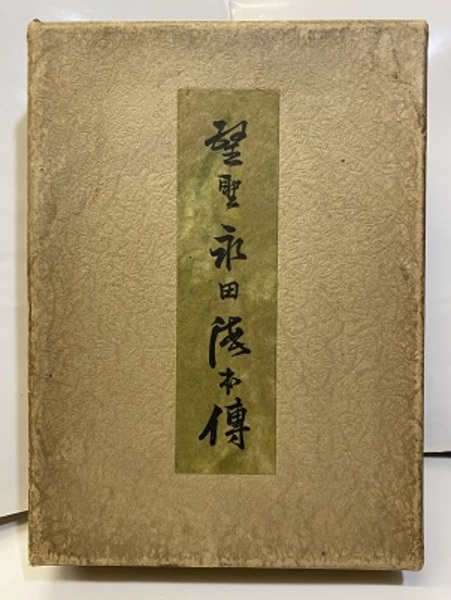 醫聖永田徳本傳